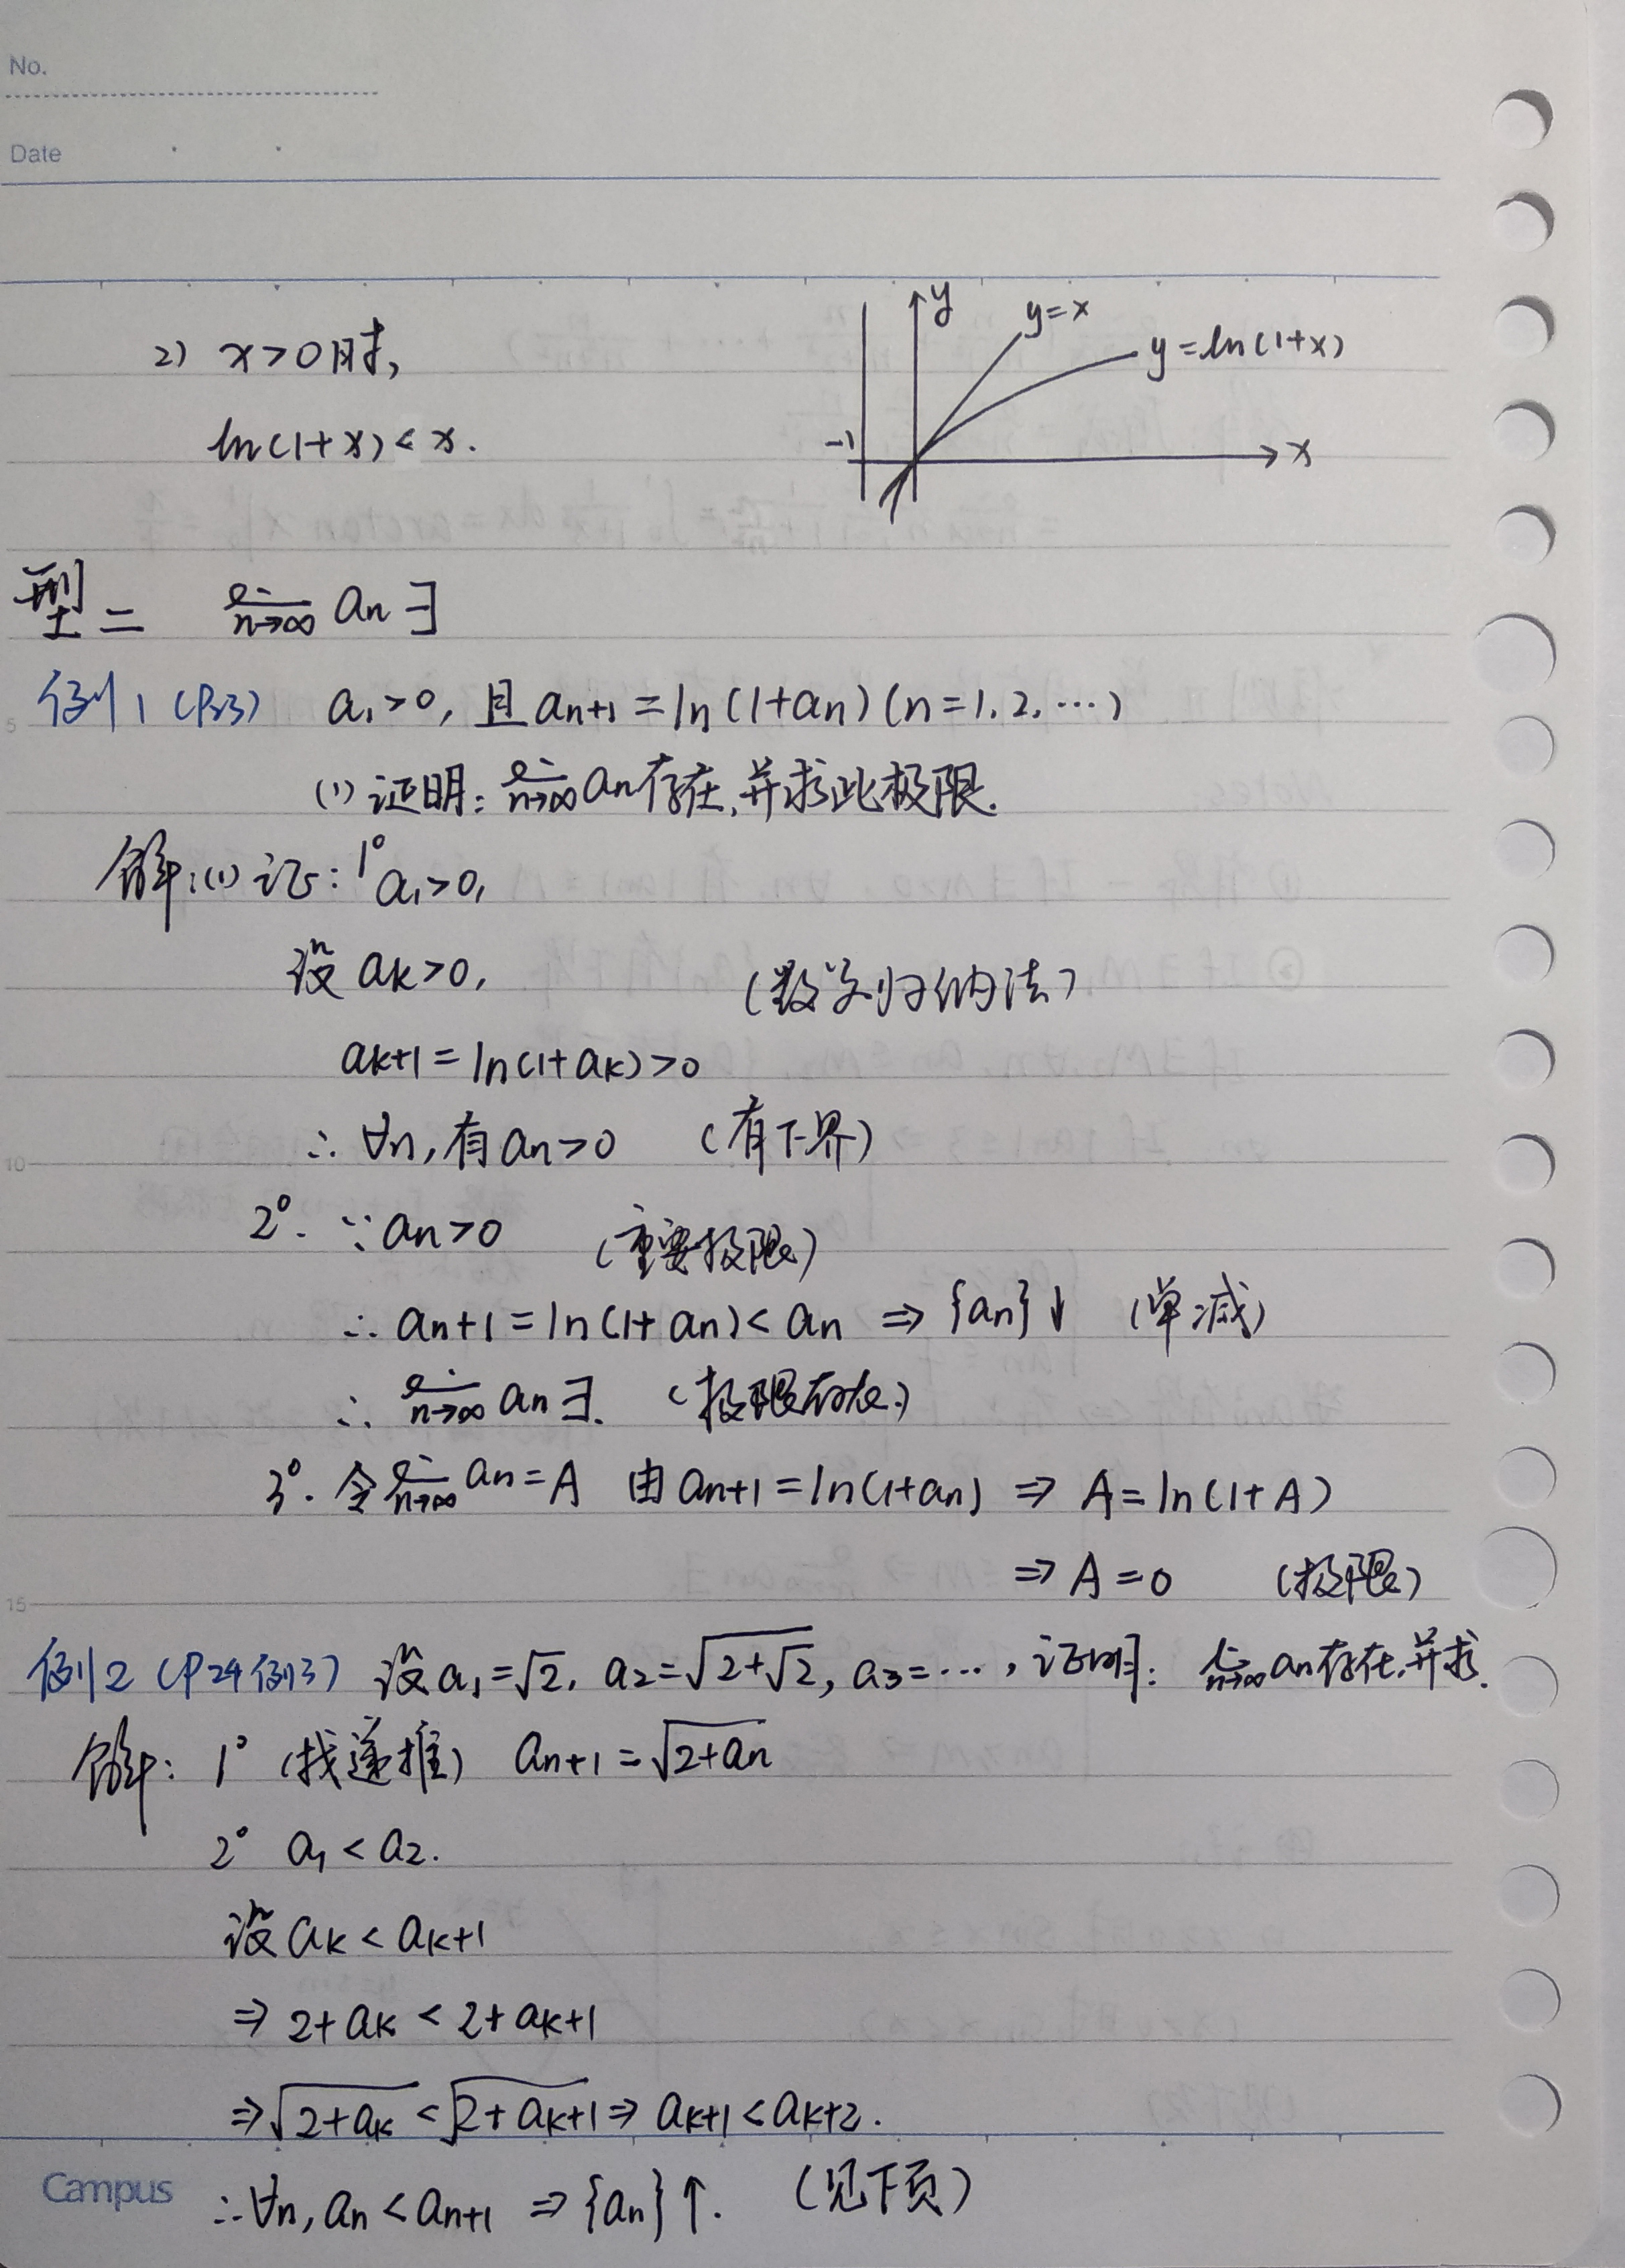 No.
Date
2) x>0时,
ln(1+x)<x.
y
y=x
y=ln(1+x)
-1
x
型二 lim n→∞ an ∃
例1 (P23) a₁>0, 且 an+1=ln(1+an) (n=1.2.…)
(1) 证明: lim n→∞ an存在,并求此极限.
解:(1) 证: 1° a₁>0,
设 ak>0, (数学归纳法)
ak+1=ln(1+ak)>0
∴ ∀n,有an>0 (有下界)
2°. ∵ an>0 (重要极限)
∴ an+1=ln(1+an)<an ⇒ {an}↓ (单减)
∴ lim n→∞ an ∃. (极限存在)
3°. 令 lim n→∞ an=A 由 an+1=ln(1+an) ⇒ A=ln(1+A)
⇒ A=0 (极限)
例2 (P24例3) 设a₁=√2, a₂=√(2+√2), a₃=…, 证明: lim n→∞ an存在,并求.
解: 1° (找递推) an+1=√(2+an)
2° a₁<a₂.
设 ak<ak+1
⇒ 2+ak<2+ak+1
⇒ √(2+ak)<√(2+ak+1) ⇒ ak+1<ak+2.
∴ ∀n, an<an+1 ⇒ {an}↑. (见下页)
Campus
5
10
15